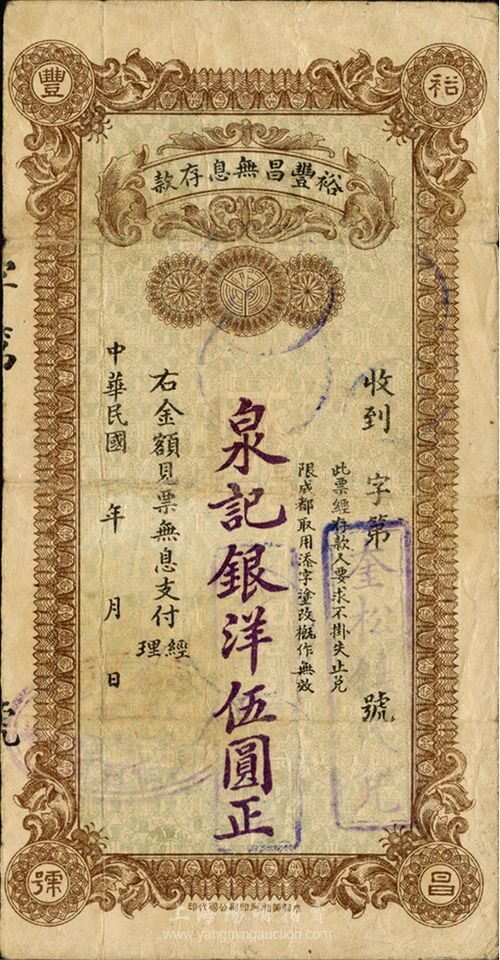 裕豐昌號
裕豐昌無息存款
收到 字第 號
此票經存款人要求不掛失止兌
限成都取用添字塗改概作無效
泉記銀洋伍圓正
右金額見票無息支付
經理
中華民國 年 月 日
字第
號
www.yangmingauction.com